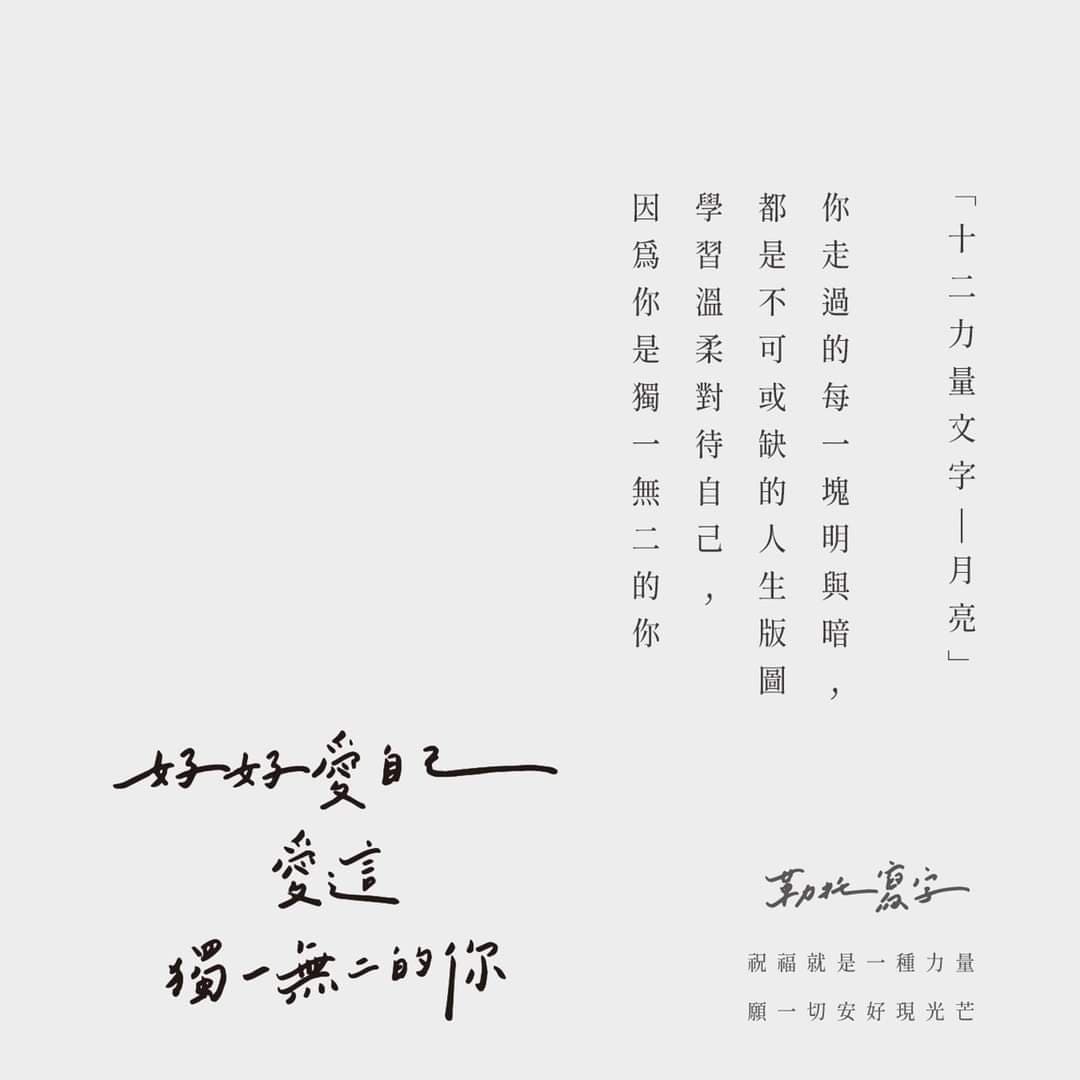 「十二力量文字—月亮」
你走過的每一塊明與暗,
都是不可或缺的人生版圖
學習溫柔對待自己,
因爲你是獨一無二的你
好好愛自己
愛這
獨一無二的你
勒托寫字
祝福就是一種力量
願一切安好現光芒